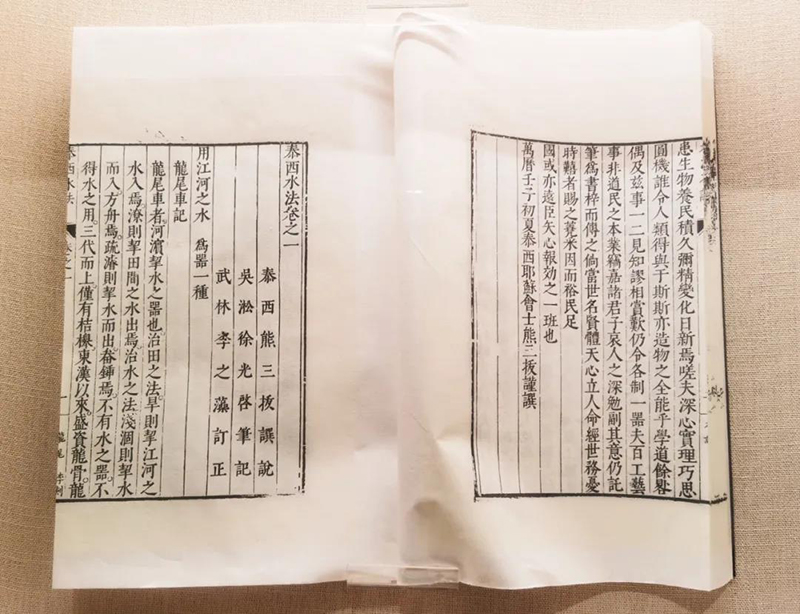 患生物養民積久彌精變化日新焉嗟夫深心實理巧思
圓機誰令人類得與于斯斯亦造物之全能乎學道餘畧
偶及兹事一二見知謬相賞歎仍令各制一器夫百工藝
事非道民之本業竊嘉諸君子哀人之深勉副其意仍託
筆為書梓而傳之倘當世名賢體天心立人命經世務憂
時艱者賜之蒭采因而裕民足
國或亦遠臣矢心報效之一班也
萬曆壬子初夏泰西耶蘇會士熊三拔謹譔
泰西水法卷之一
泰西熊三拔譔說
吳淞徐光啓筆記
武林李之藻訂正
用江河之水 為器一種
龍尾車記
龍尾車者河濱挈水之器也治田之法旱則挈江河之
水入焉潦則挈田間之水出焉治水之法淺涸則挈水
而入方舟焉疏濬則挈水而出畚鍤焉不有水之器不
得水之用三代而上僅有桔橰東漢以來盛資龍骨龍
泰西水法
卷之一
一